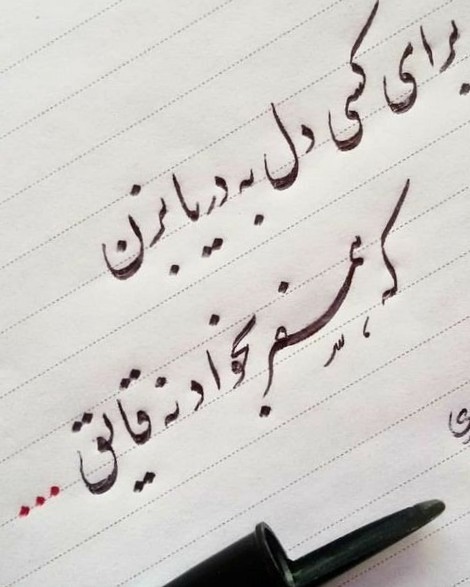 برای کسی دل به دریا بزن
که همسفر بخواد نه قایق...